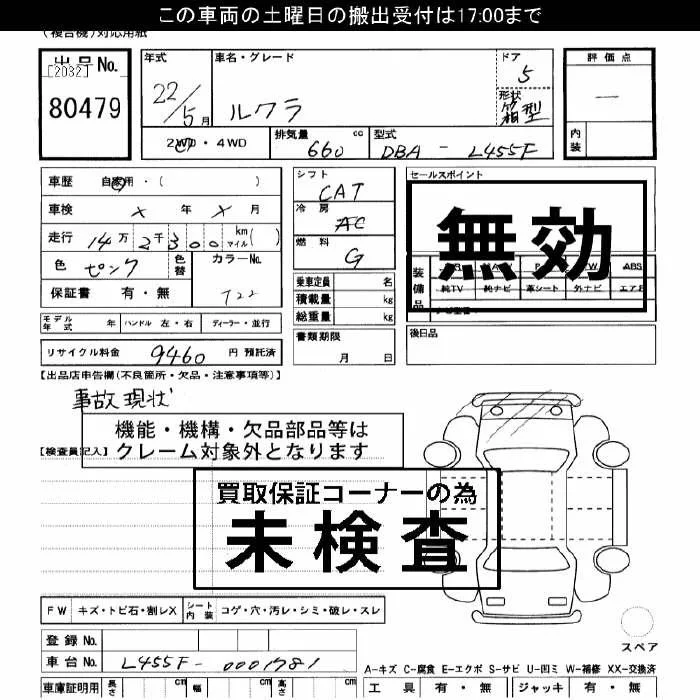 この車両の土曜日の搬出受付は17:00まで
(複合機)対応用紙
出品No.
[2032]
80479
年式
22/5月
車名・グレード
ルクラ
ドア
5
形状
箱型
評価点
—
内装
2WD・4WD
排気量 660 cc
型式 DBA - L455F
車歴 自家用・( )
車検 × 年 × 月
走行 14万2千300 km マイル( )
色 ピンク
色替
カラーNo.
T22
保証書 有・無
シフト
CAT
冷房
AC
燃料
G
乗車定員 名
積載量 kg
総重量 kg
書類期限
月 日
セールスポイント
無効
装備品
ABS
純TV 純ナビ 革シート 外ナビ エアB
後日品
モデル年式 年 ハンドル 左・右 ディーラー・並行
リサイクル料金 9460 円 預託済
【出品店申告欄(不良箇所・欠品・注意事項等)】
事故現状
機能・機構・欠品部品等は
クレーム対象外となります
【検査員記入】
買取保証コーナーの為
未検査
FW キズ・トビ石・割レX
シート内装 コゲ・穴・汚レ・シミ・破レ・スレ
登録No.
車台No. L455F-0001781
車庫証明用 長さ cm 幅 cm 高さ cm
スペア
A-キズ C-腐食 E-エクボ S-サビ U-凹ミ W-補修 XX-交換済
工具 有・無 ジャッキ 有・無